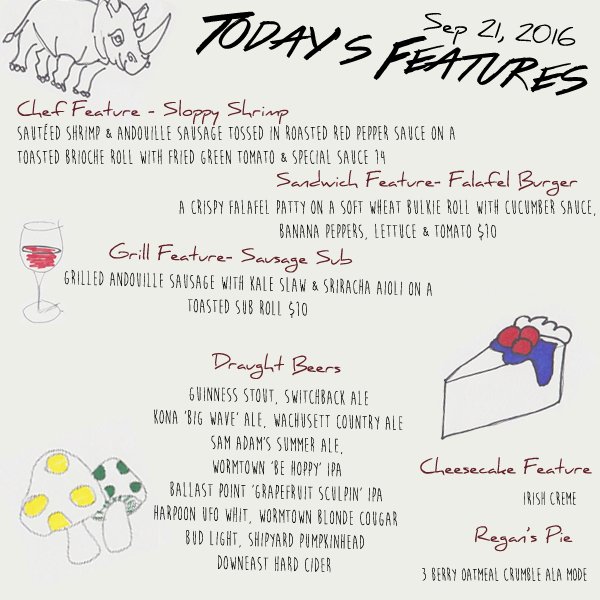 Sep 21, 2016
Today's Features
Chef Feature - Sloppy Shrimp
Sautéed shrimp & andouille sausage tossed in roasted red pepper sauce on a
toasted brioche roll with fried green tomato & special sauce 14
Sandwich Feature- Falafel Burger
A crispy falafel patty on a soft wheat bulkie roll with cucumber sauce,
banana peppers, lettuce & tomato $10
Grill Feature- Sausage Sub
Grilled andouille sausage with kale slaw & sriracha aioli on a
toasted sub roll $10
Draught Beers
Guinness Stout, Switchback Ale
Kona 'Big Wave' Ale, Wachusett Country Ale
Sam Adam's Summer Ale,
Wormtown 'Be Hoppy' IPA
Ballast Point 'Grapefruit Sculpin' IPA
Harpoon UFO Whit, Wormtown Blonde Cougar
Bud Light, Shipyard Pumpkinhead
Downeast Hard Cider
Cheesecake Feature
Irish Creme
Regan's Pie
3 Berry Oatmeal Crumble ala mode